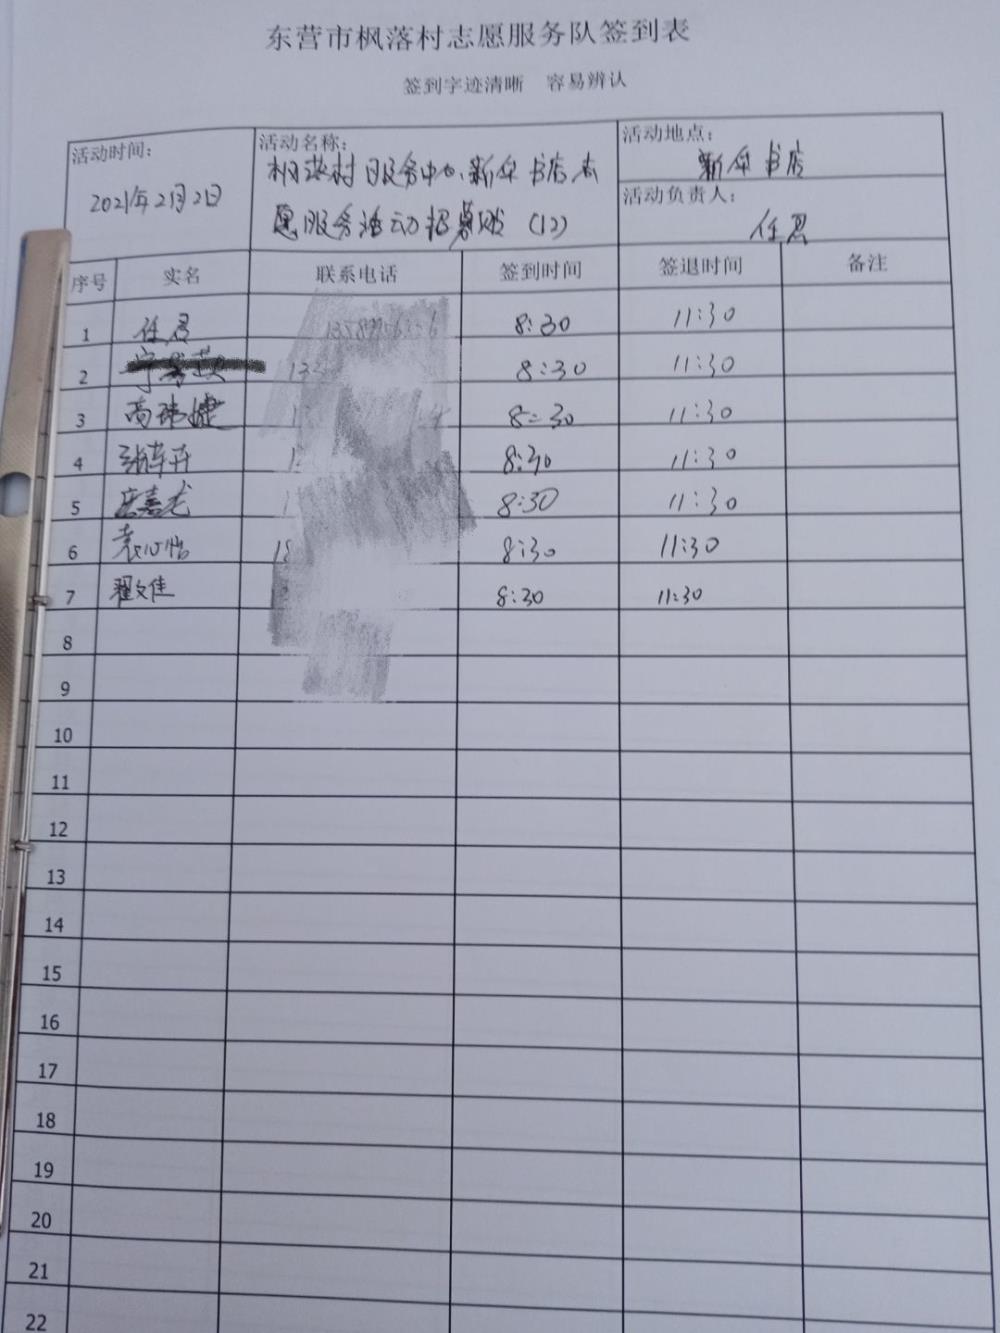 东营市枫落村志愿服务队签到表
签到字迹清晰 容易辨认
活动时间: 2021年2月2日
活动名称: 枫落村服务中心、新华书店志
愿服务活动招募贴 (12)
活动地点: 新华书店
活动负责人: 任君
序号 实名 联系电话 签到时间 签退时间 备注
1 任君 8:30 11:30
2 8:30 11:30
3 高 婕 8:30 11:30
4 8:30 11:30
5 庄嘉龙 8:30 11:30
6 袁心怡 18 8:30 11:30
7 翟文佳 8:30 11:30
8
9
10
11
12
13
14
15
16
17
18
19
20
21
22